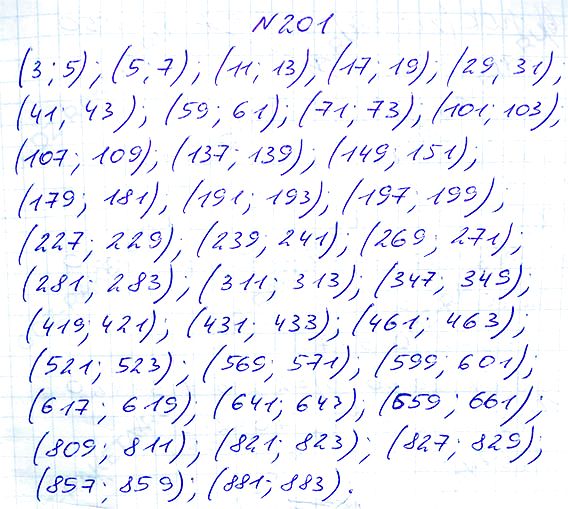 N201
(3; 5); (5, 7); (11; 13); (17; 19); (29, 31);
(41; 43); (59; 61); (71; 73); (101; 103);
(107; 109); (137; 139); (149; 151);
(179; 181), (191; 193); (197; 199);
(227; 229); (239; 241); (269; 271);
(281; 283); (311; 313); (347; 349);
(419; 421); (431; 433); (461; 463);
(521; 523); (569; 571); (599, 601);
(617; 619); (641; 643); (659; 661);
(809; 811); (821; 823); (827; 829);
(857; 859); (881; 883).